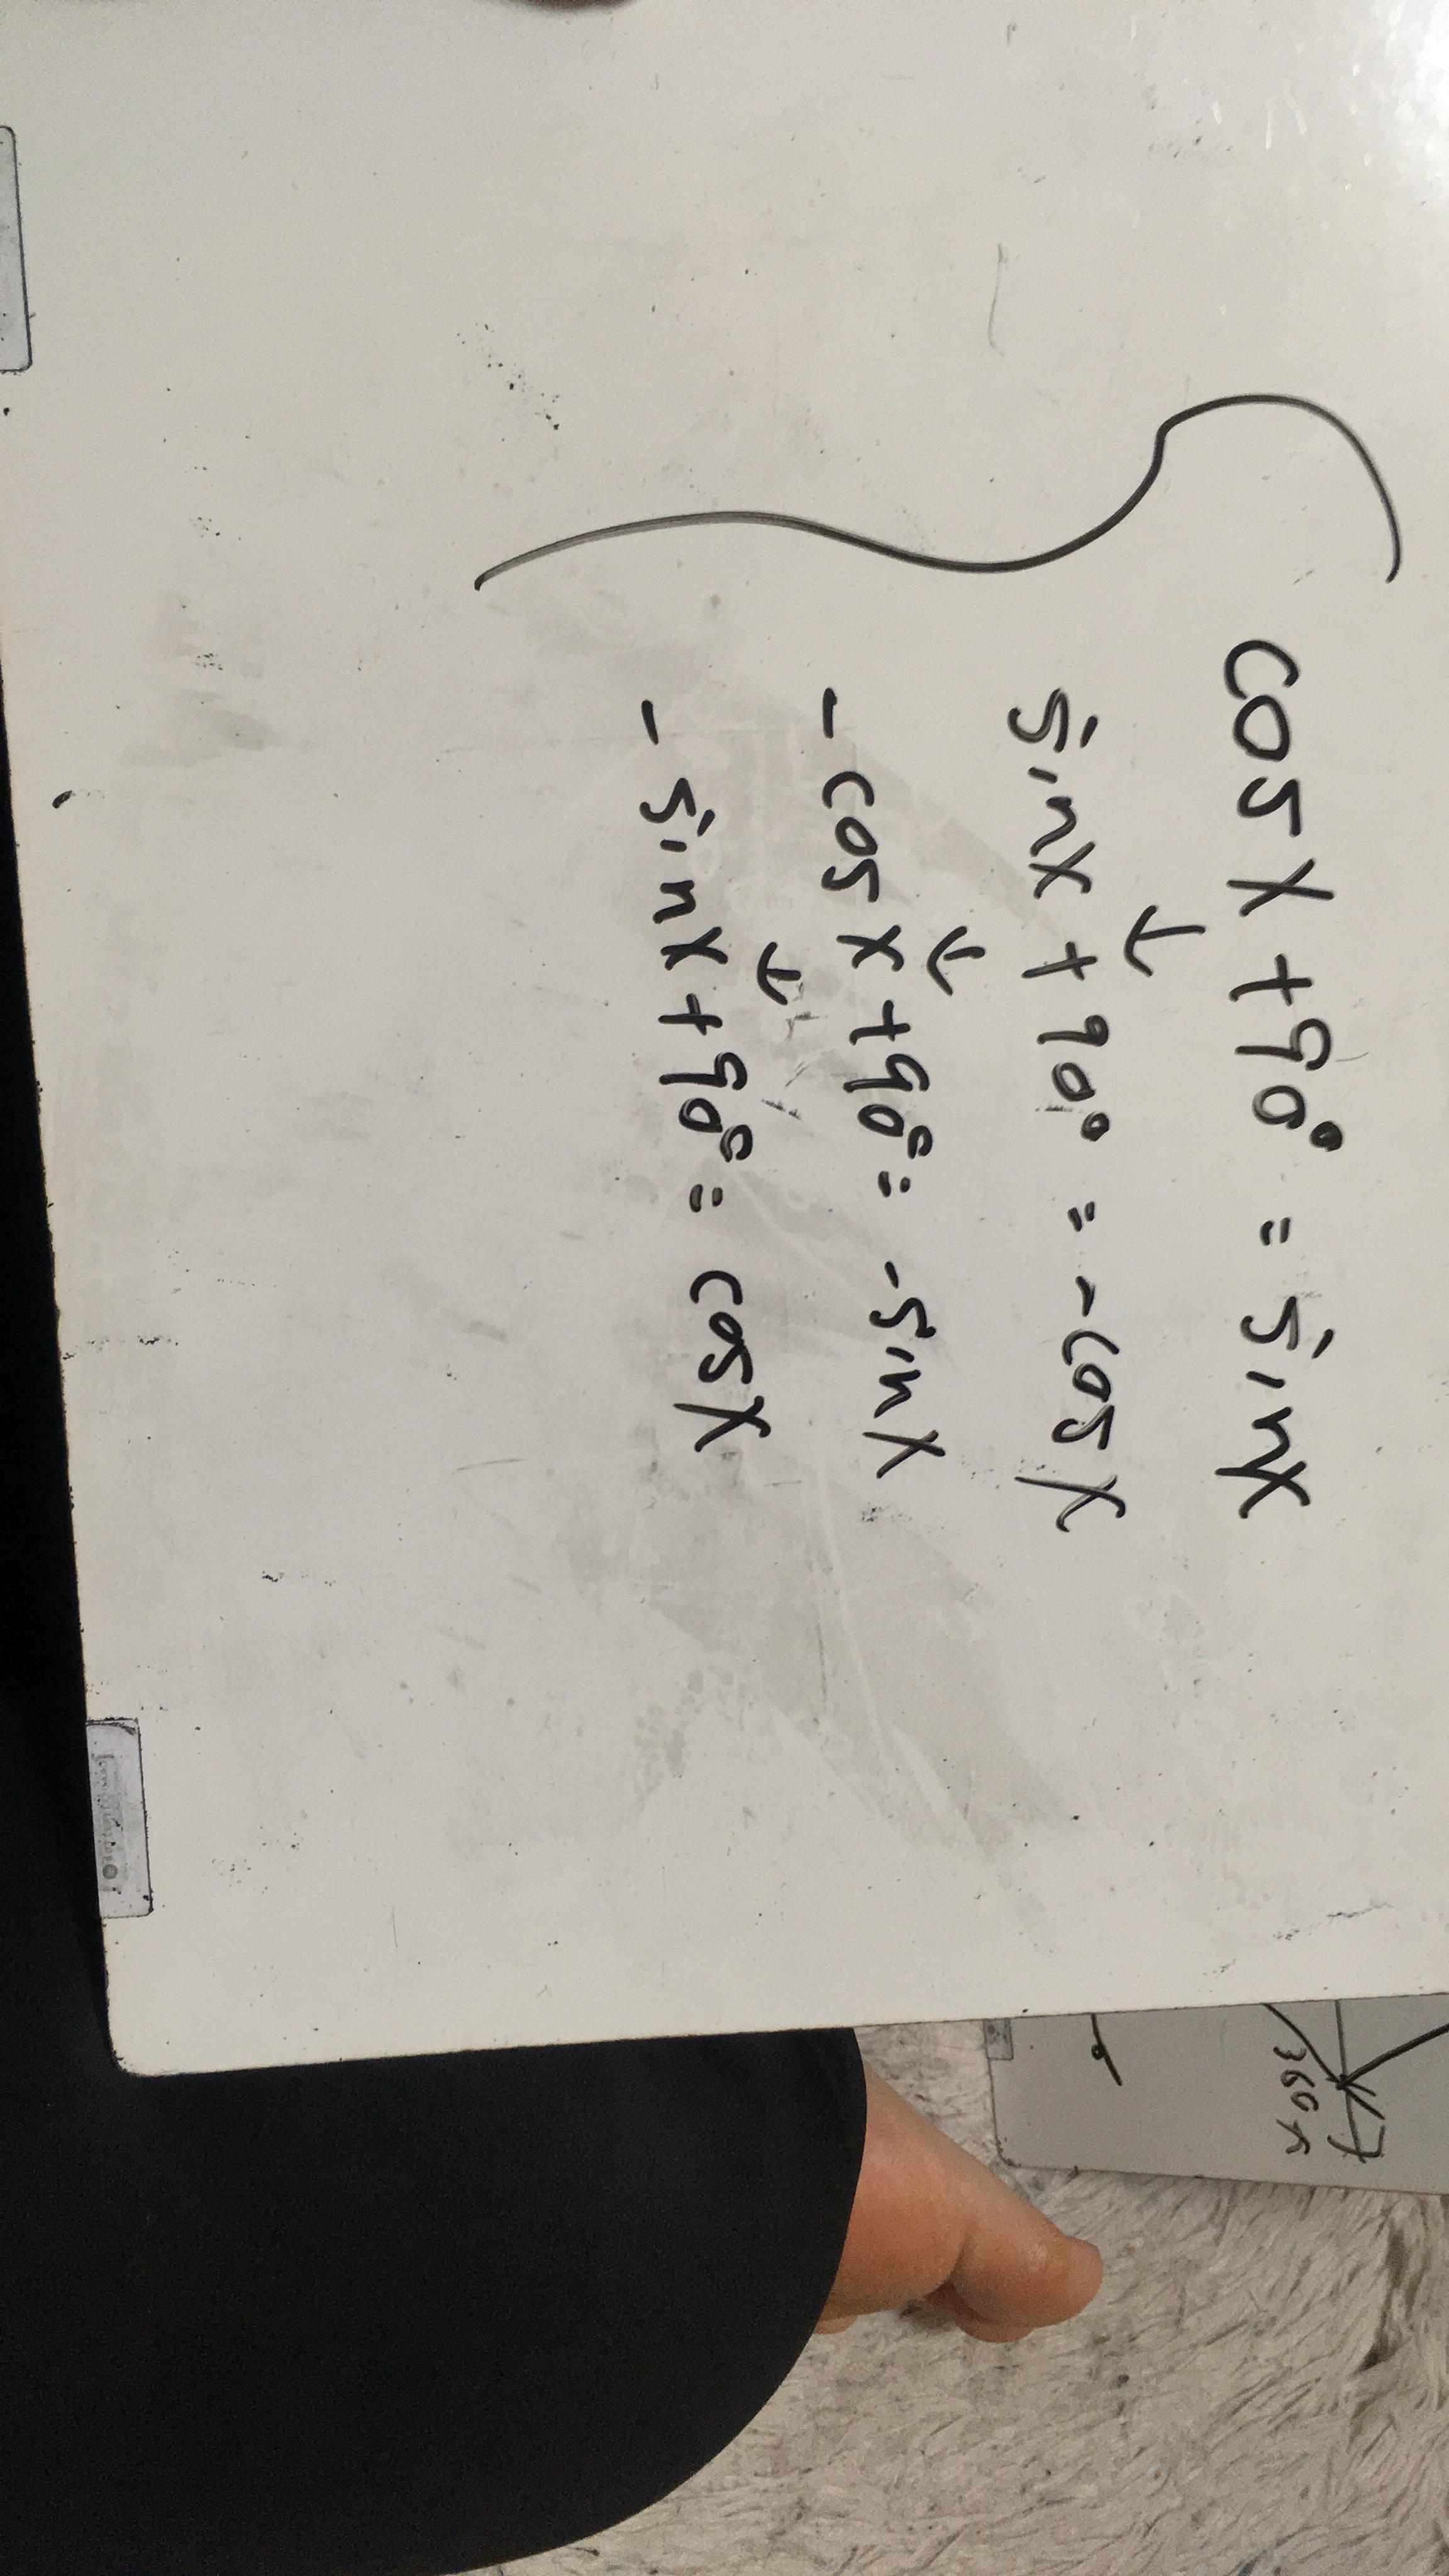 cosx +90° = sinx
↓
sinx + 90° = -cosx
↓
-cosx +90° = -sinx
↓
-sinx +90° = cosx
360